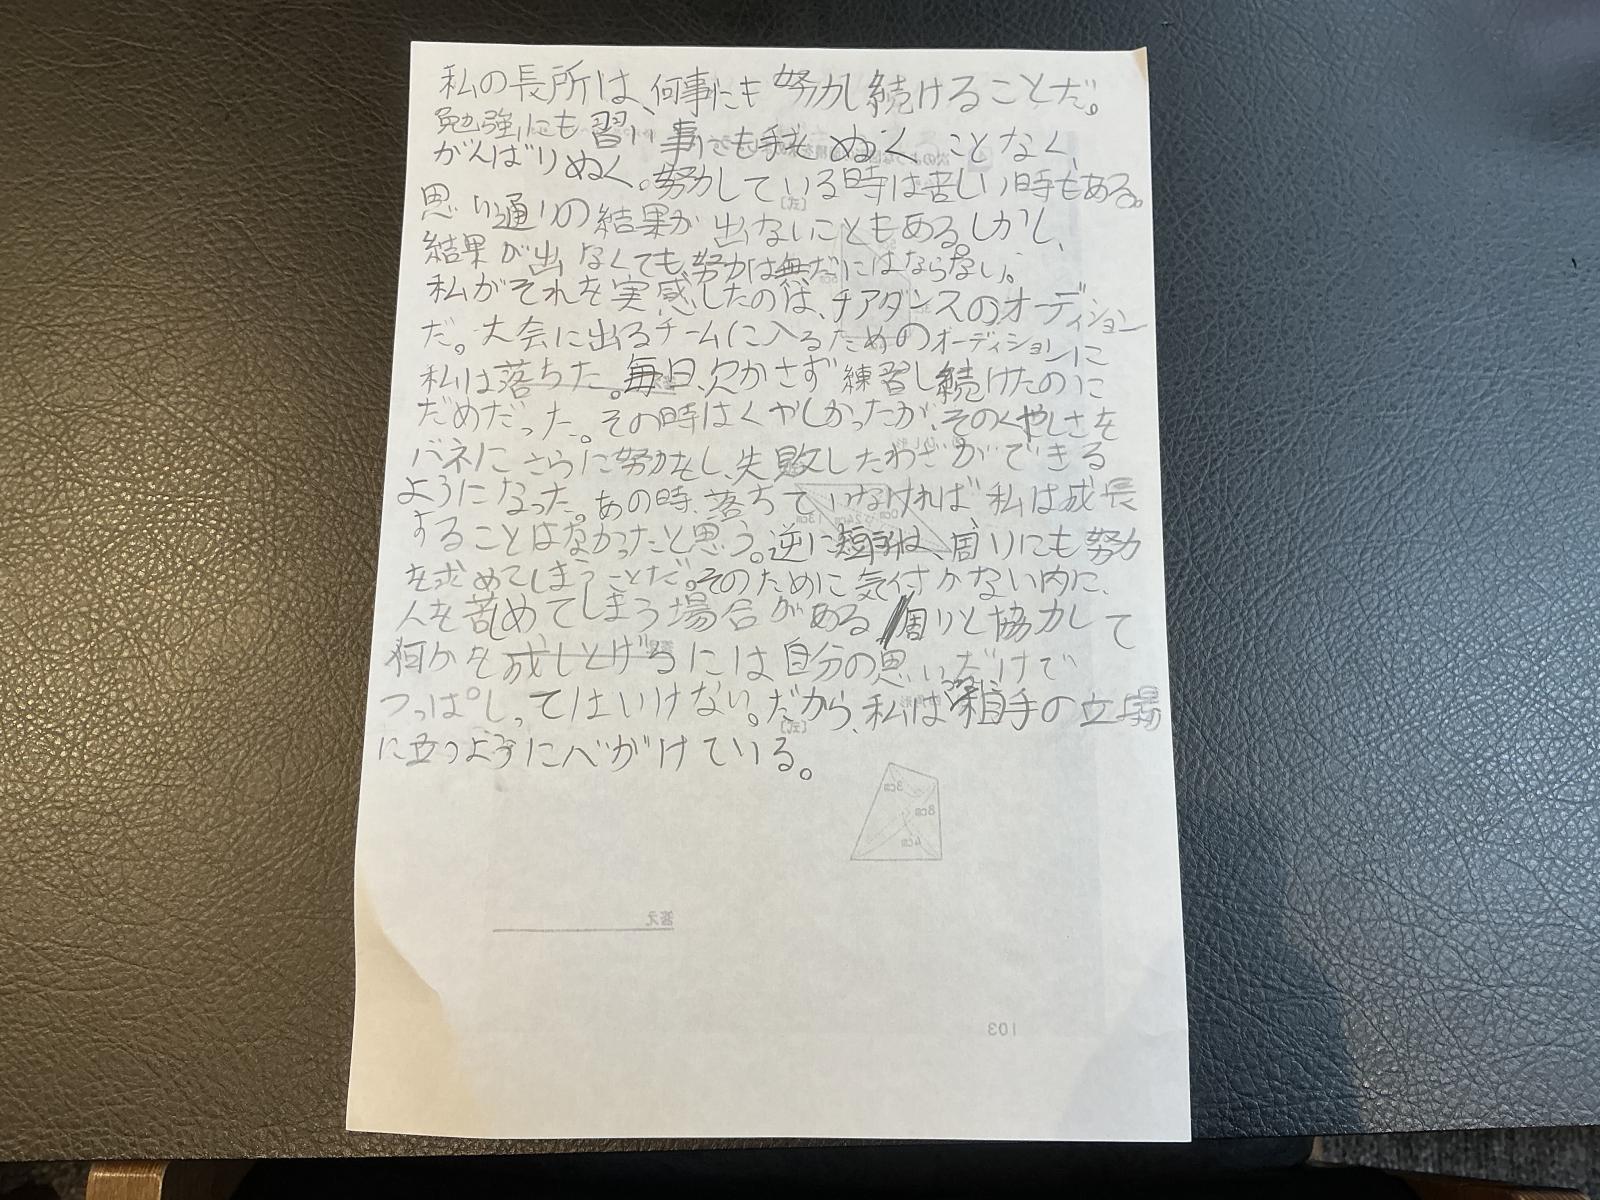 私の長所は、何事にも努力し続けることだ。
勉強にも習い事にも手をぬくことなく、
がんばりぬく。努力している時は苦しい時もある。
思い通りの結果が出ないこともある。しかし、
結果が出なくても、努力は無だにはならない。
私がそれを実感したのは、チアダンスのオーディション
だ。大会に出るチームに入るためのオーディションに
私は落ちた。毎日、欠かさず練習し続けたのに
だめだった。その時はくやしかったが、そのくやしさを
バネにさらに努力をし、失敗したわざができる
ようになった。あの時、落ちていなければ、私は成長
することはなかったと思う。逆に短所は、周りにも努力
を求めてしまうことだ。そのために気付かない内に、
人を責めてしまう場合がある 周りと協力して
何かを成しとげるには自分の思いだけで
つっぱしってはいけない。だから、私は相手の立場
に立つように心がけている。
答え
3cm
8cm
4cm
答え
103